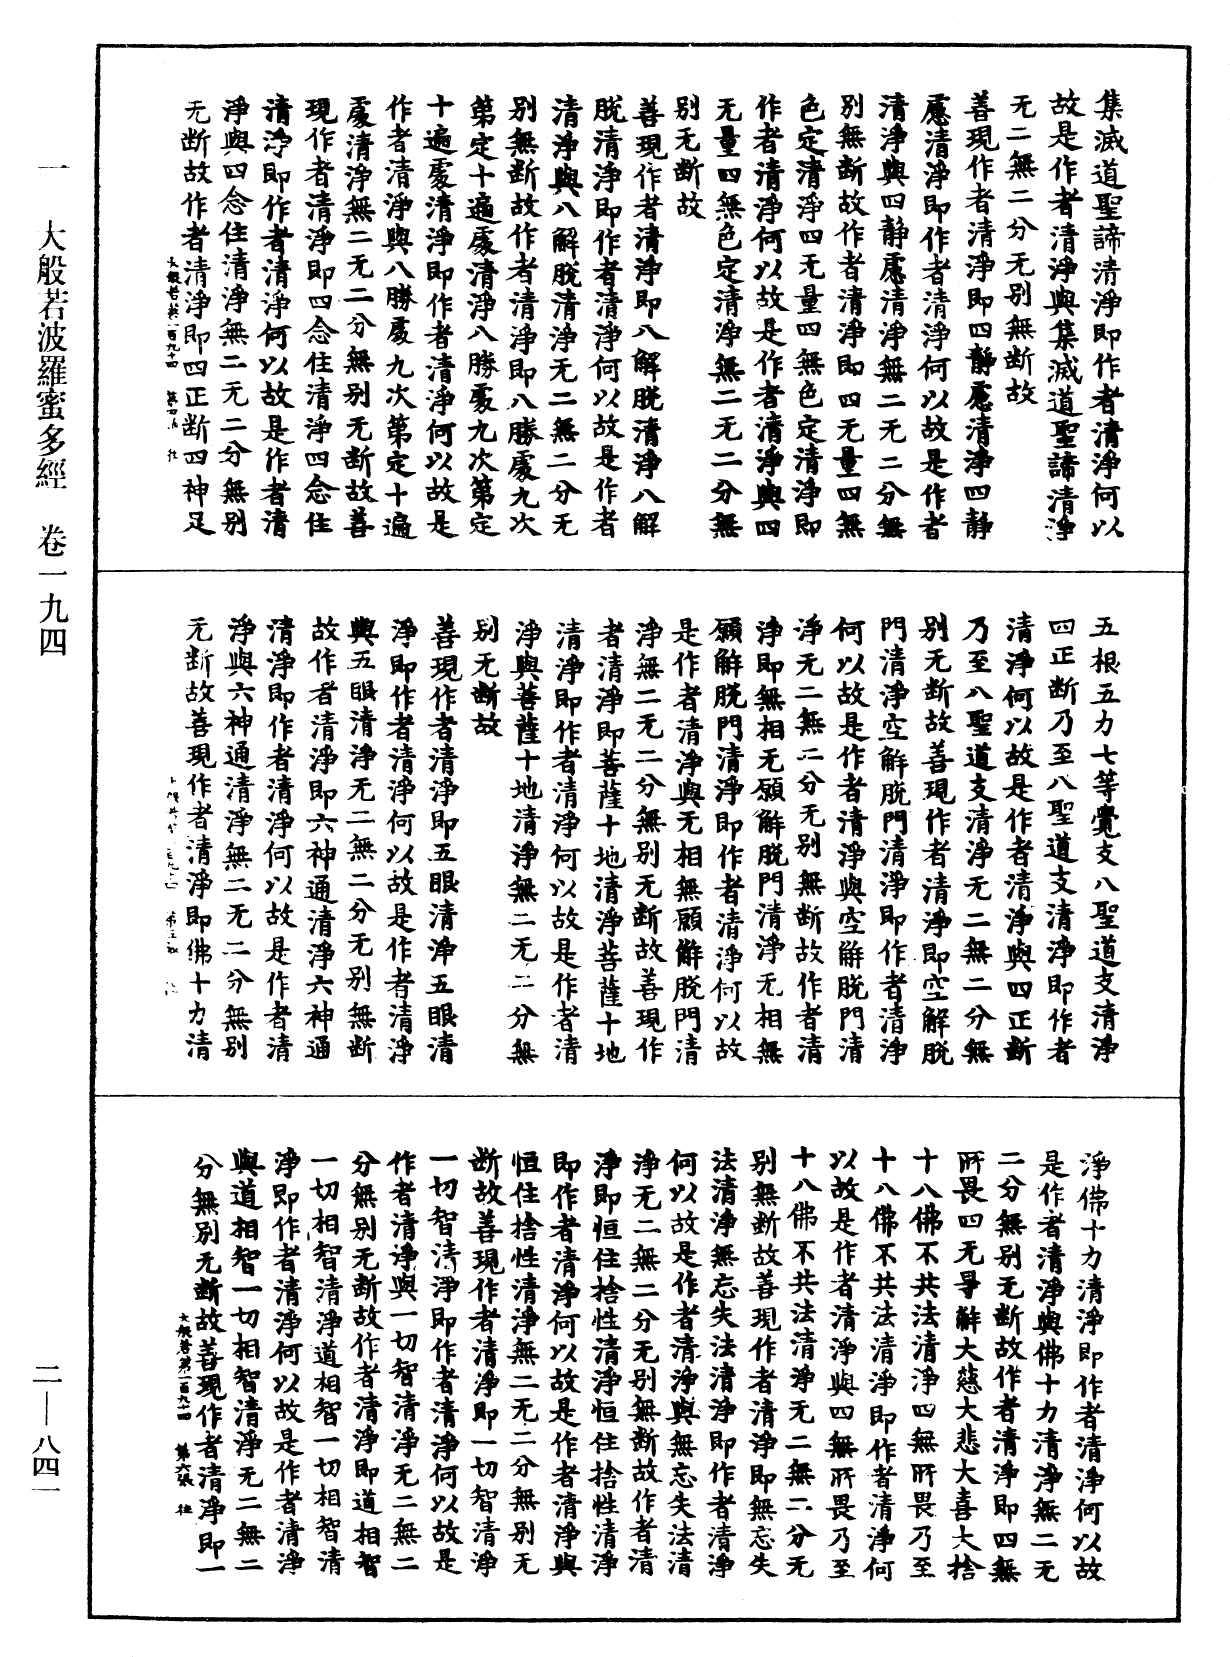 集滅道聖諦清淨即作者清淨何以
故是作者清淨與集滅道聖諦清淨
无二無二分无別無断故
善現作者清淨即四静慮清淨四静
慮清淨即作者清淨何以故是作者
清淨與四静慮清淨無二无二分無
別無断故作者清淨即四无量四無
色定清淨四无量四無色定清淨即
作者清淨何以故是作者清淨與四
无量四無色定清淨無二无二分無
別无断故
善現作者清淨即八解脱清淨八解
脱清淨即作者清淨何以故是作者
清淨與八解脱清淨无二無二分无
別無断故作者清淨即八勝處九次
第定十遍處清淨八勝處九次第定
十遍處清淨即作者清淨何以故是
作者清淨與八勝處九次第定十遍
處清淨無二无二分無別无断故善
現作者清淨即四念住清淨四念住
清淨即作者清淨何以故是作者清
淨與四念住清淨無二无二分無別
无断故作者清淨即四正断四神足
大般若第一百九十四 第四張
五根五力七等覺支八聖道支清淨
四正断乃至八聖道支清淨即作者
清淨何以故是作者清淨與四正断
乃至八聖道支清淨无二無二分無
別无断故善現作者清淨即空解脱
門清淨空解脱門清淨即作者清淨
何以故是作者清淨與空解脱門清
淨无二無二分无別無断故作者清
淨即無相无願解脱門清淨无相無
願解脱門清淨即作者清淨何以故
是作者清淨與无相無願解脱門清
淨無二无二分無別无断故善現作
者清淨即菩薩十地清淨菩薩十地
清淨即作者清淨何以故是作者清
淨與菩薩十地清淨無二无二分無
別无断故
善現作者清淨即五眼清淨五眼清
淨即作者清淨何以故是作者清淨
與五眼清淨无二無二分无別無断
故作者清淨即六神通清淨六神通
清淨即作者清淨何以故是作者清
淨與六神通清淨無二无二分無別
无断故善現作者清淨即佛十力清
淨佛十力清淨即作者清淨何以故
是作者清淨與佛十力清淨無二无
二分無別无断故作者清淨即四無
所畏四无㝵解大慈大悲大喜大捨
十八佛不共法清淨四無所畏乃至
十八佛不共法清淨即作者清淨何
以故是作者清淨與四無所畏乃至
十八佛不共法清淨无二無二分无
別無断故善現作者清淨即無忘失
法清淨無忘失法清淨即作者清淨
何以故是作者清淨與無忘失法清
淨无二無二分无別無断故作者清
淨即恒住捨性清淨恒住捨性清淨
即作者清淨何以故是作者清淨與
恒住捨性清淨無二无二分無別无
断故善現作者清淨即一切智清淨
一切智清淨即作者清淨何以故是
作者清淨與一切智清淨无二無二
分無別无断故作者清淨即道相智
一切相智清淨道相智一切相智清
淨即作者清淨何以故是作者清淨
與道相智一切相智清淨无二無二
分無別无断故善現作者清淨即一
大般若第一百九十四 第六張
一 大般若波羅蜜多經 卷一九四
二—八四一